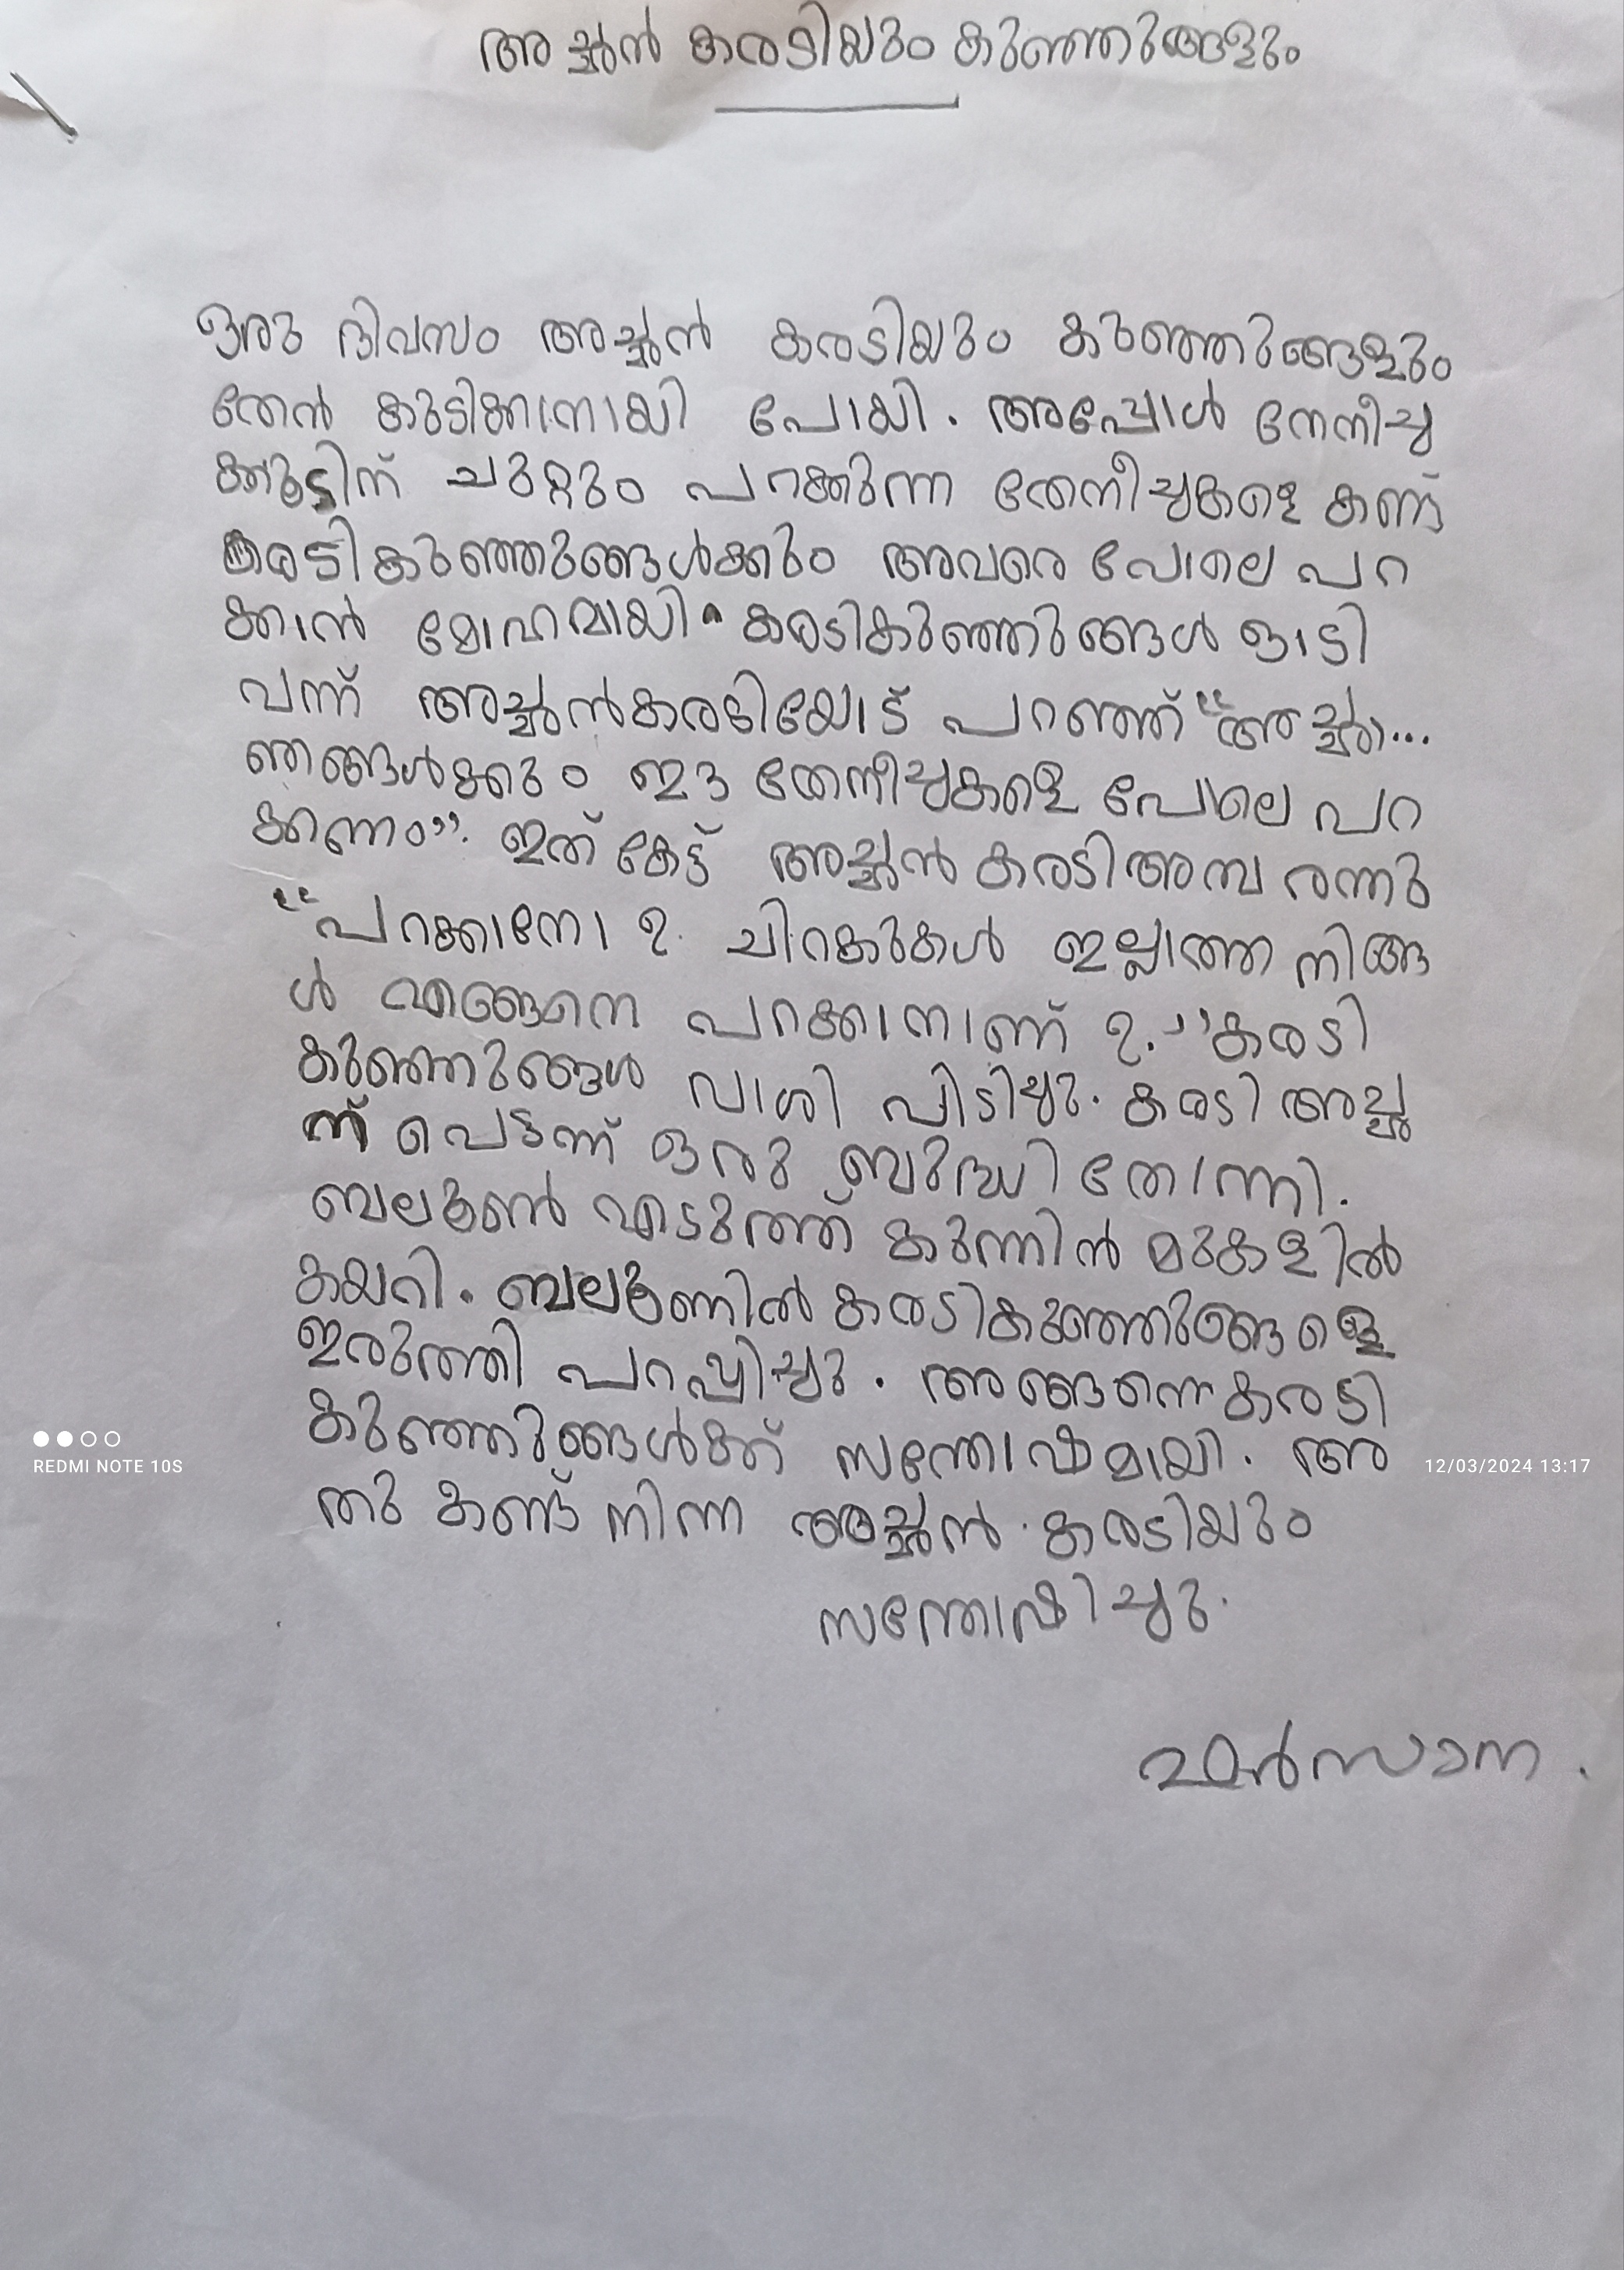 അച്ഛൻ കരടിയും കുഞ്ഞുങ്ങളും
ഒരു ദിവസം അച്ഛൻ കരടിയും കുഞ്ഞുങ്ങളും
തേൻ കുടിക്കാനായി പോയി. അപ്പോൾ തേനീച്ച
ക്കൂടിന് ചുറ്റും പറക്കുന്ന തേനീച്ചകളെ കണ്ട്
കരടികുഞ്ഞുങ്ങൾക്കും അവരെ പോലെ പറ
ക്കാൻ മോഹമായി. കരടികുഞ്ഞുങ്ങൾ ഓടി
വന്ന് അച്ഛൻകരടിയോട് പറഞ്ഞ് "അച്ഛാ...
ഞങ്ങൾക്കും ഈ തേനീച്ചകളെ പോലെ പറ
ക്കണം". ഇത് കേട്ട് അച്ഛൻ കരടി അമ്പരന്നു
"പറക്കാനോ ?. ചിറകുകൾ ഇല്ലാത്ത നിങ്ങ
ൾ എങ്ങനെ പറക്കാനാണ് ?." കരടി
കുഞ്ഞുങ്ങൾ വാശി പിടിച്ചു. കരടി അച്ഛ
ന് പെട്ടന്ന് ഒരു ബുദ്ധി തോന്നി.
ബലൂൺ എടുത്ത് കുന്നിൻ മുകളിൽ
കയറി. ബലൂണിൽ കരടികുഞ്ഞുങ്ങളെ
ഇരുത്തി പറപ്പിച്ചു. അങ്ങനെ കരടി
കുഞ്ഞുങ്ങൾക്ക് സന്തോഷമായി. അ
തു കണ്ട് നിന്ന അച്ഛൻ കരടിയും
സന്തോഷിച്ചു.
ഫർസാന.
REDMI NOTE 10S
12/03/2024 13:17